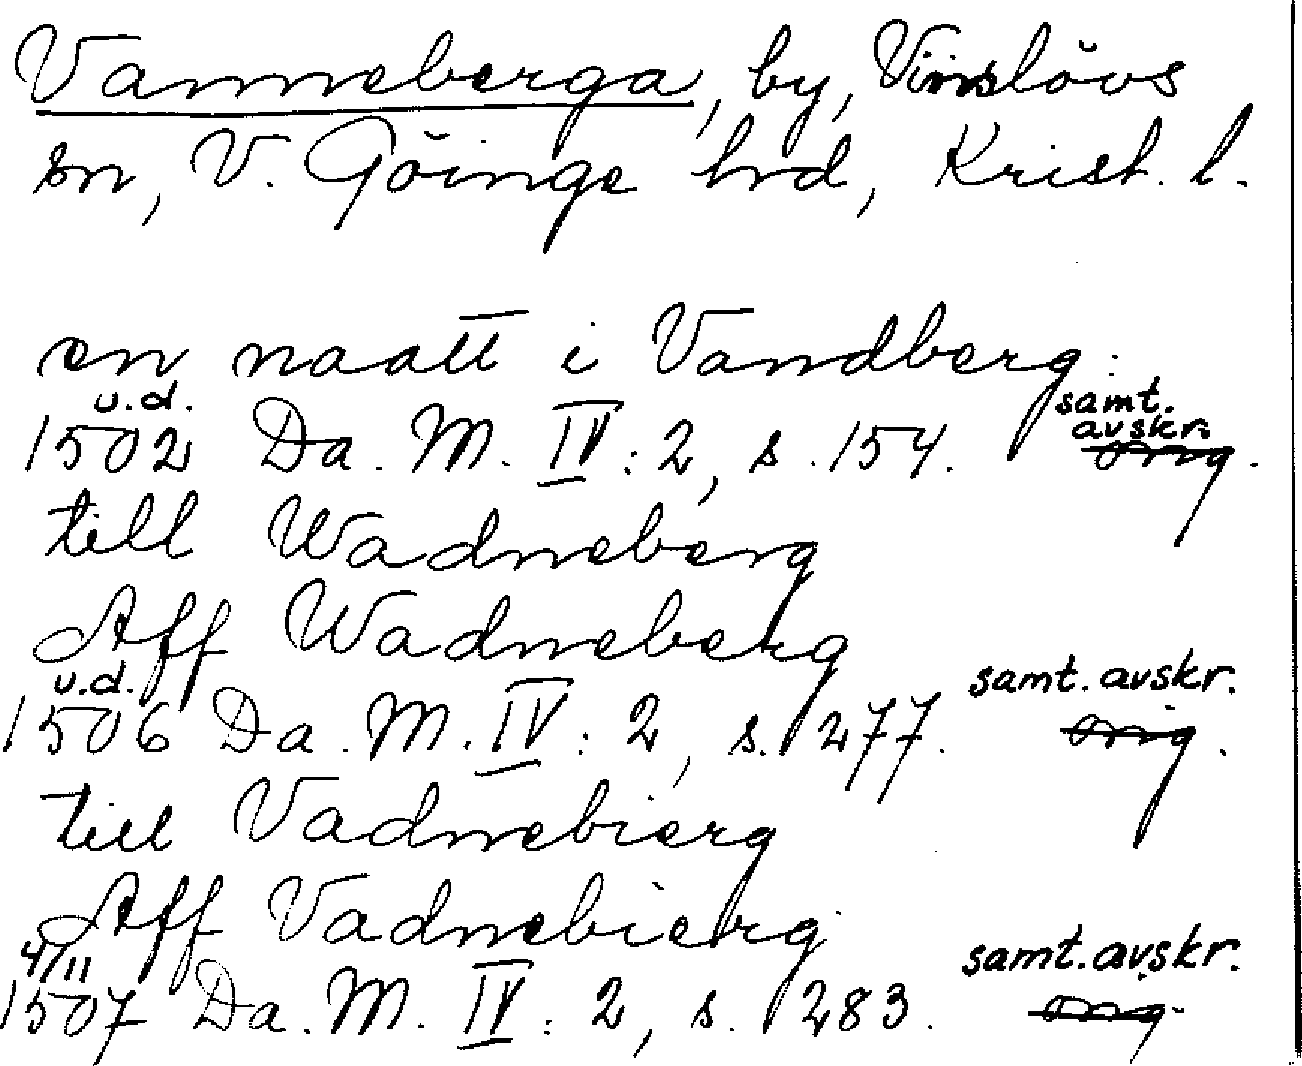 Vanneberga, by, Vinslövs
sn, V. Göinge hrd, Krist. l.
en naatt i Vandberg:
u.d. samt.
avskr.
1502 Da. M. IV: 2, s. 154. orig.
till Wadneberg
Aff Wadneberg
u.d. samt. avskr.
1506 Da. M. IV: 2, s. 277. orig.
till Vadnebierg
Aff Vadnebierg
4/11 samt. avskr.
1507 Da. M. IV: 2, s. 283. orig.